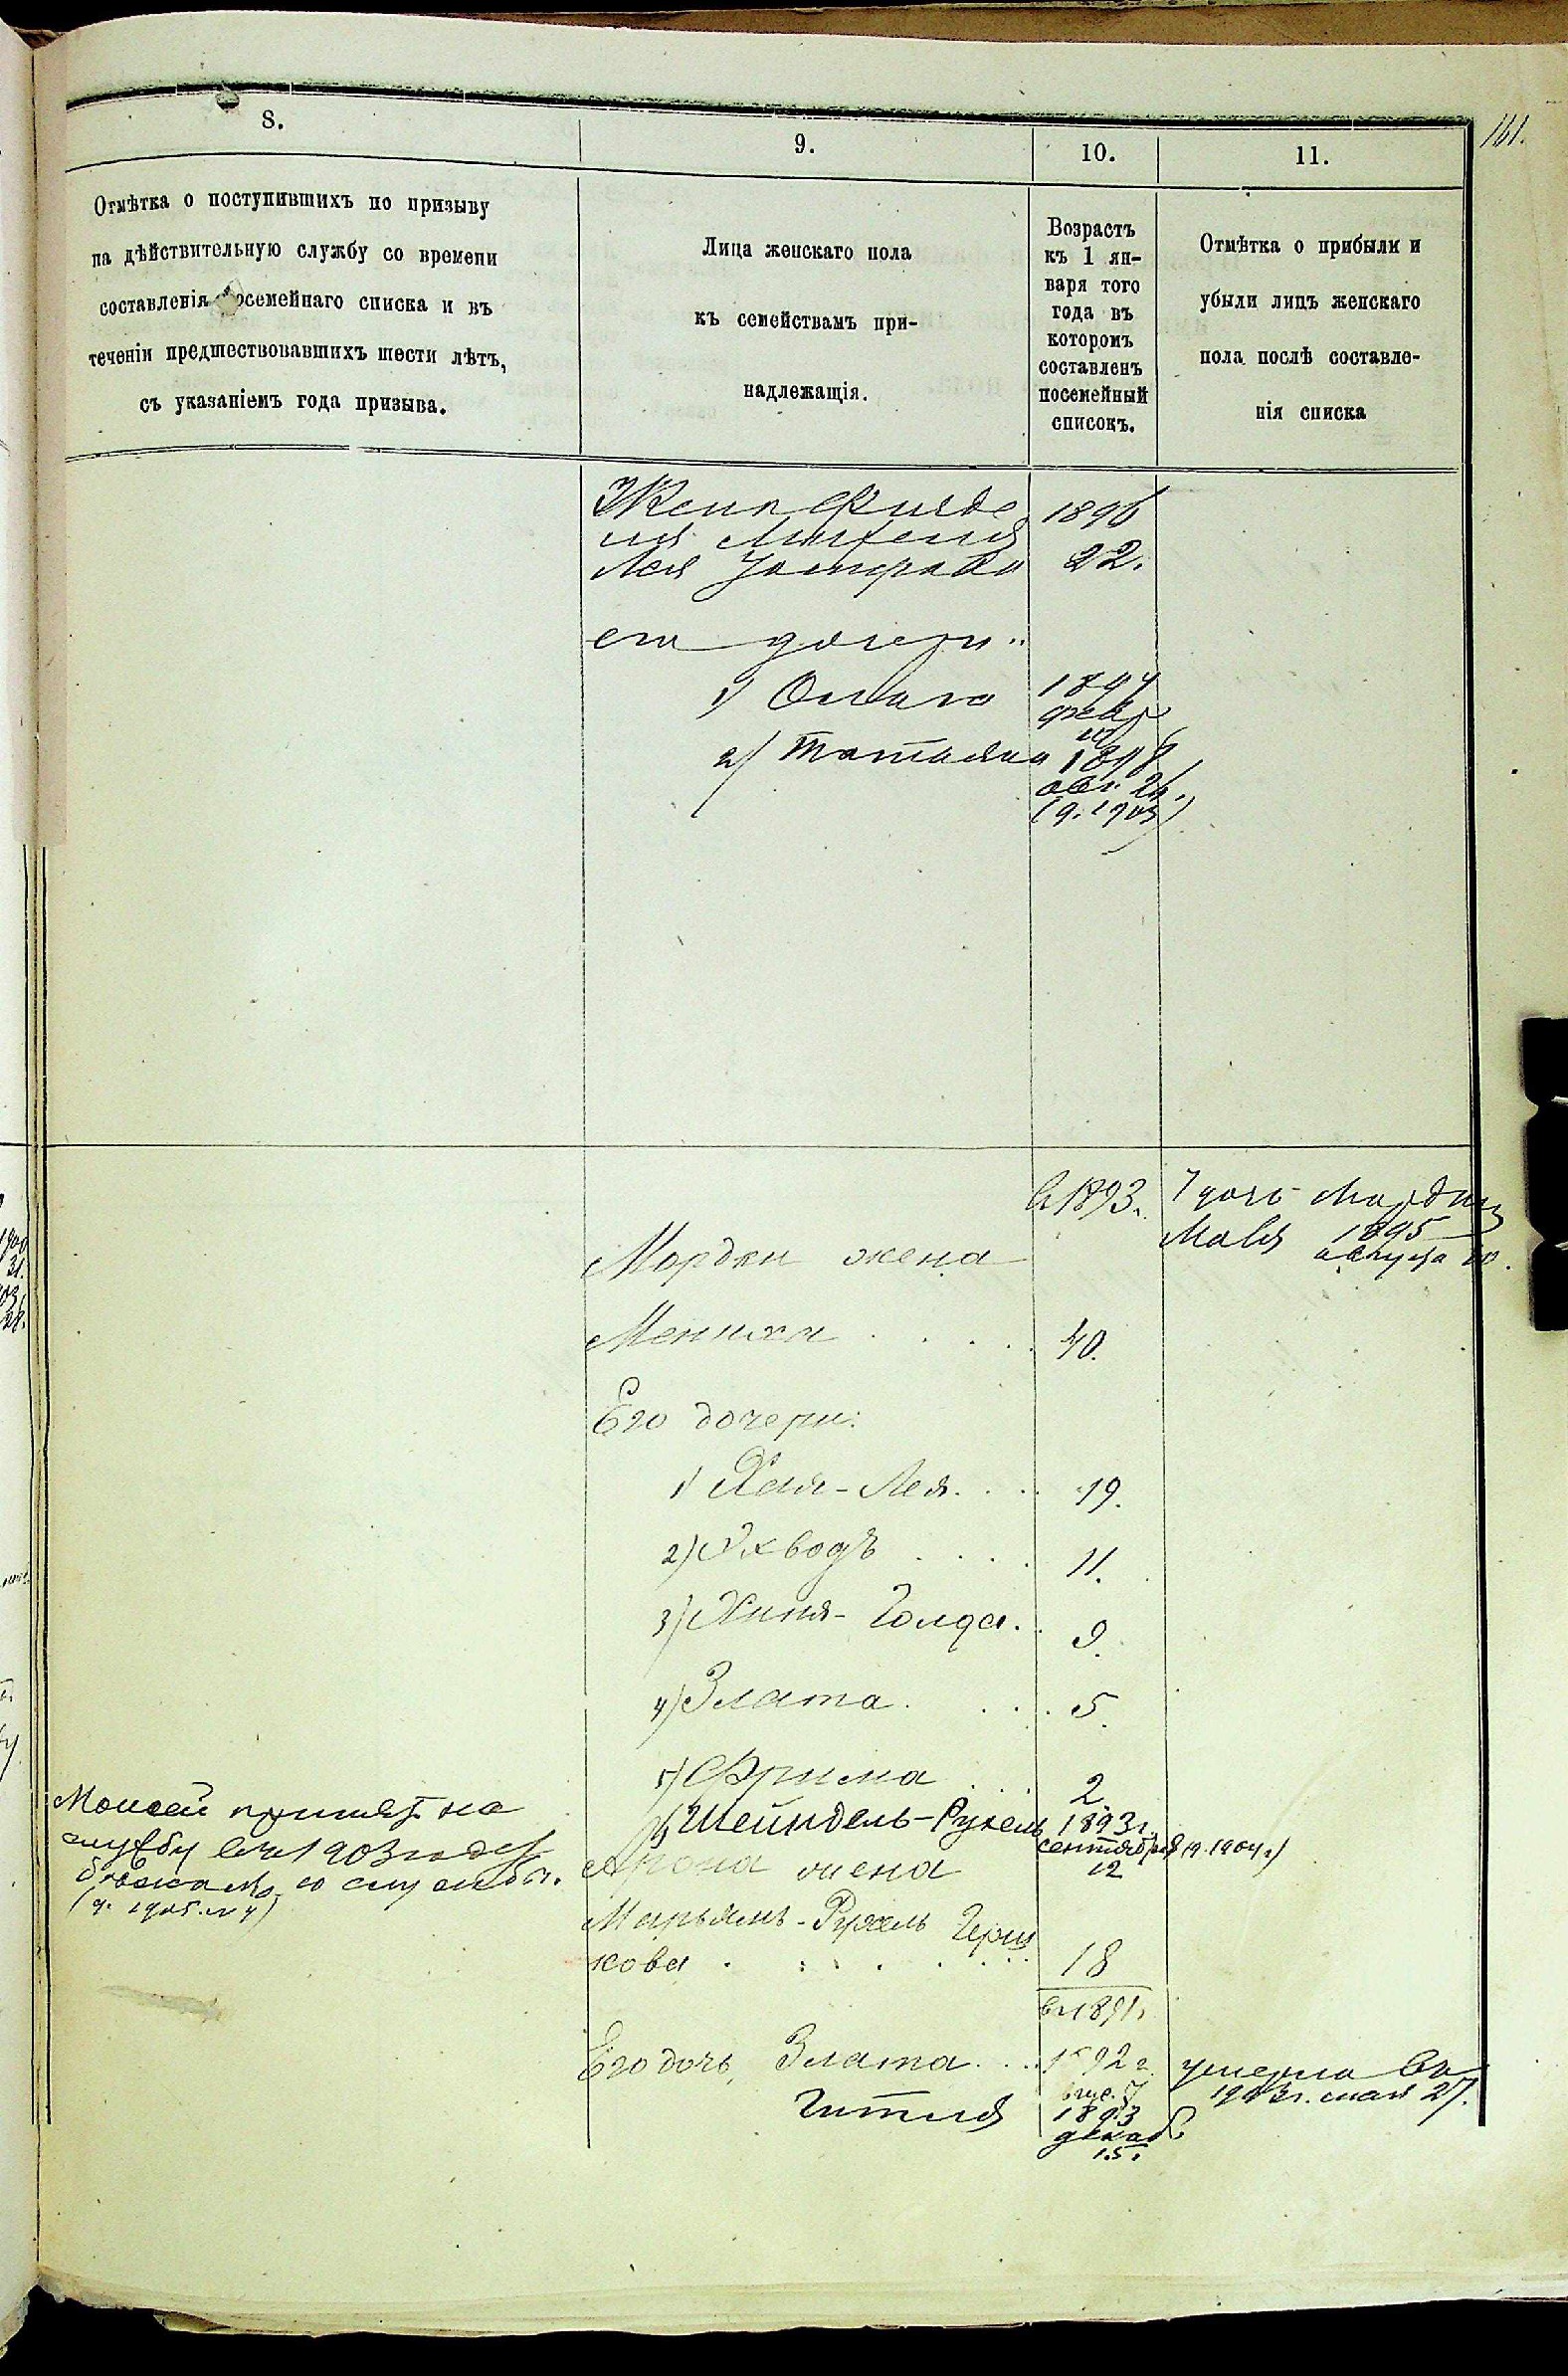 161.
8.
9.
10.
11.
Отмѣтка о поступившихъ по призыву
на дѣйствительную службу со времени
составленія посемейнаго списка и въ
теченіи предшествовавшихъ шести лѣтъ,
съ указаніемъ года призыва.
Лица женскаго пола
къ семействамъ при-
надлежащія.
Возрастъ
къ 1 ян-
варя того
года въ
которомъ
составленъ
посемейный
списокъ.
Отмѣтка о прибыли и
убыли лицъ женскаго
пола послѣ составле-
нія списка
Жена 1896
Лея 22.
его дочери:
1) 1897
февр
2) Татьяна 1898
авг. 24.
(д. 1903)
в 1893 г. дочь Мордки
Мавя 1895
августа 10.
Мордки жена
Мениха 40.
Его дочери:
1) Хая-Лея. 19.
2) Яхводъ 11.
3) Хиня-Голда. 9.
4) Злата. 5.
5) Фрима 2.
6) Шейндель-Рухель 1893 г.
сентября 12 (д. 1904 г.)
Моисей принятъ на
службу въ 1903 году
бѣжалъ со службы.
(д. 1905. № 4)
Арона жена
Марьямъ-Рухель Герш
кова 18
въ 1891 г.
Его дочь, Злата 1892 г. умерла въ
1903 г. мая 27.
Гитля 1893
декаб
15.